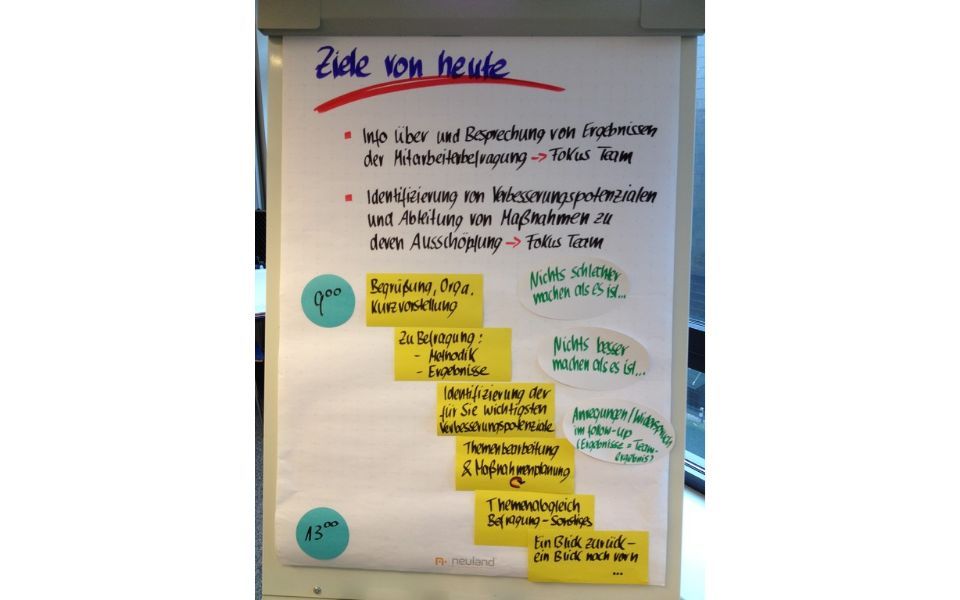 Ziele von heute
Info über und Besprechung von Ergebnissen
der Mitarbeiterbefragung → Fokus Team
Identifizierung von Verbesserungspotenzialen
und Ableitung von Maßnahmen zu
deren Ausschöpfung → Fokus Team
9⁰⁰
Begrüßung, Orga,
Kurzvorstellung
Nichts schlechter
machen als es ist...
Zu Befragung:
- Methodik
- Ergebnisse
Nichts besser
machen als es ist...
Identifizierung der
für Sie wichtigsten
Verbesserungspotenziale
Anregungen/Widerspruch
im follow-up
(Ergebnisse = Team-
ergebnis)
Themenbearbeitung
& Maßnahmenplanung
Themenabgleich
Befragung - Sonstiges
13⁰⁰
Ein Blick zurück -
ein Blick nach vorn
...
neuland